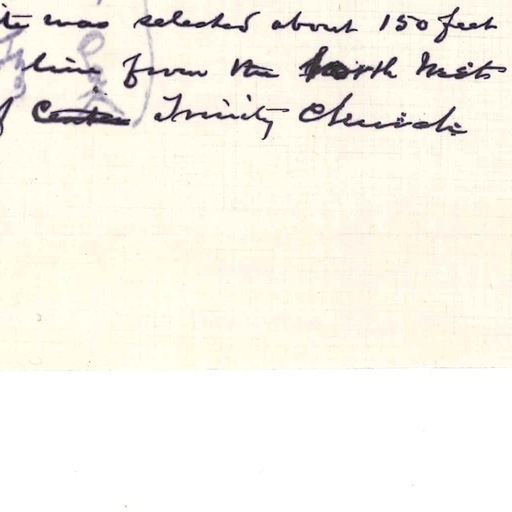 was selected about 150 feet
line from the North West
Trinity Church